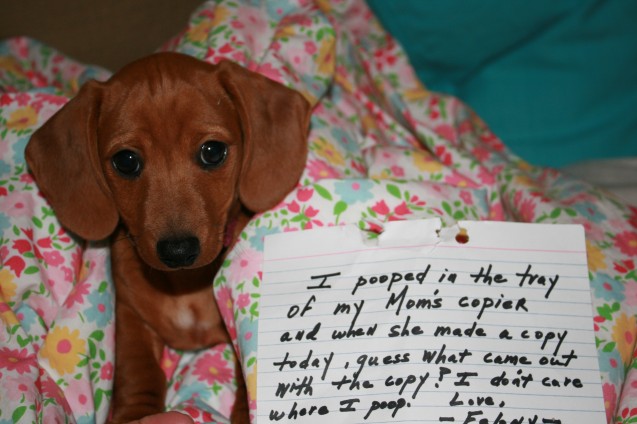 I pooped in the tray
of my Moms copier
and when she made a copy
today, guess what came out
with the copy? I don't care
where I poop. Love,